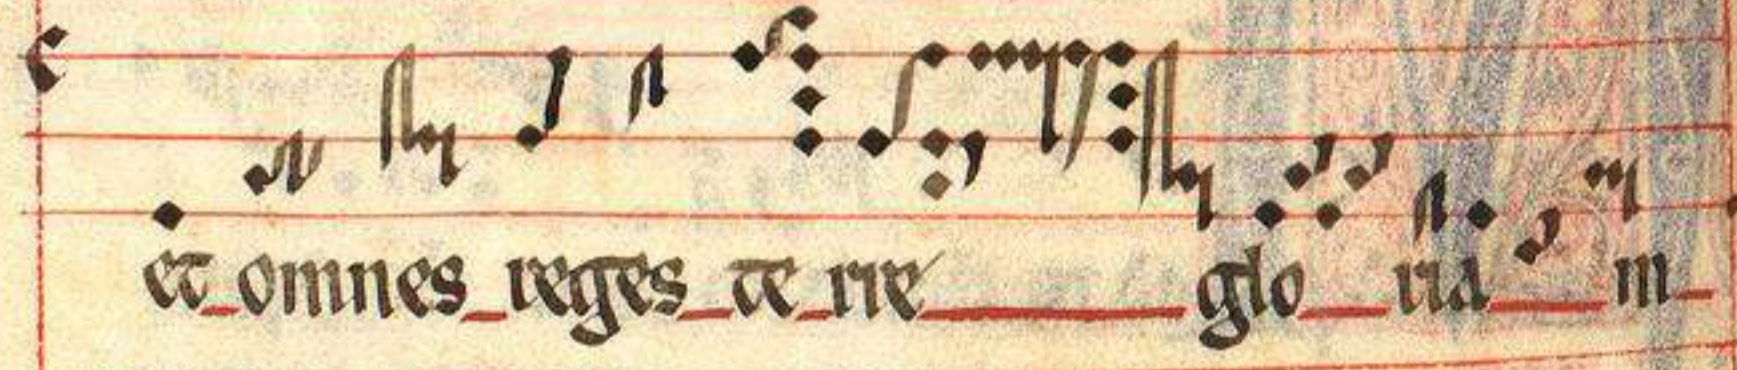 et omnes reges te rre glo ria m